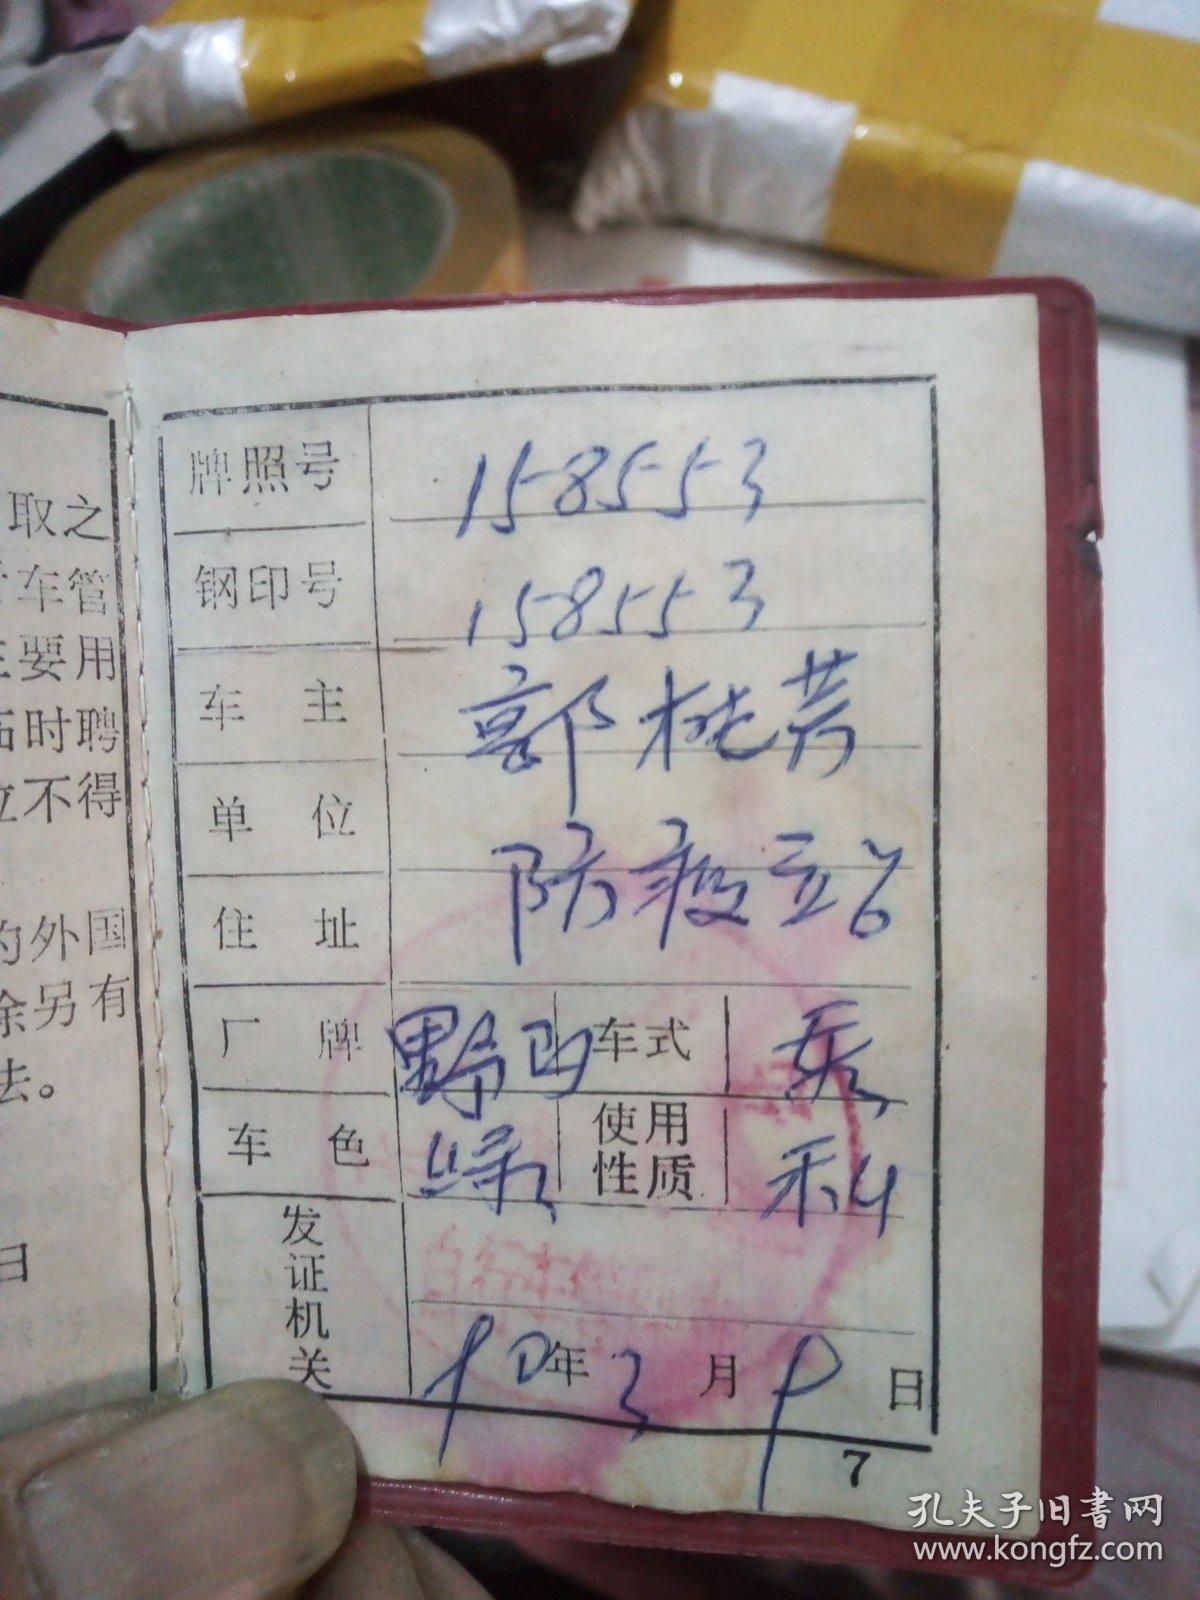 取之
车管
要用
时聘
立不得
的外国
除另有
法。
日
牌照号 158553
钢印号 158553
车主 郭桃芳
单位
防疫站
住址
厂牌 野马 车式
车色 绿 使用性质 私
发证机关
90年3月9日
7
孔夫子旧书网
www.kongfz.com